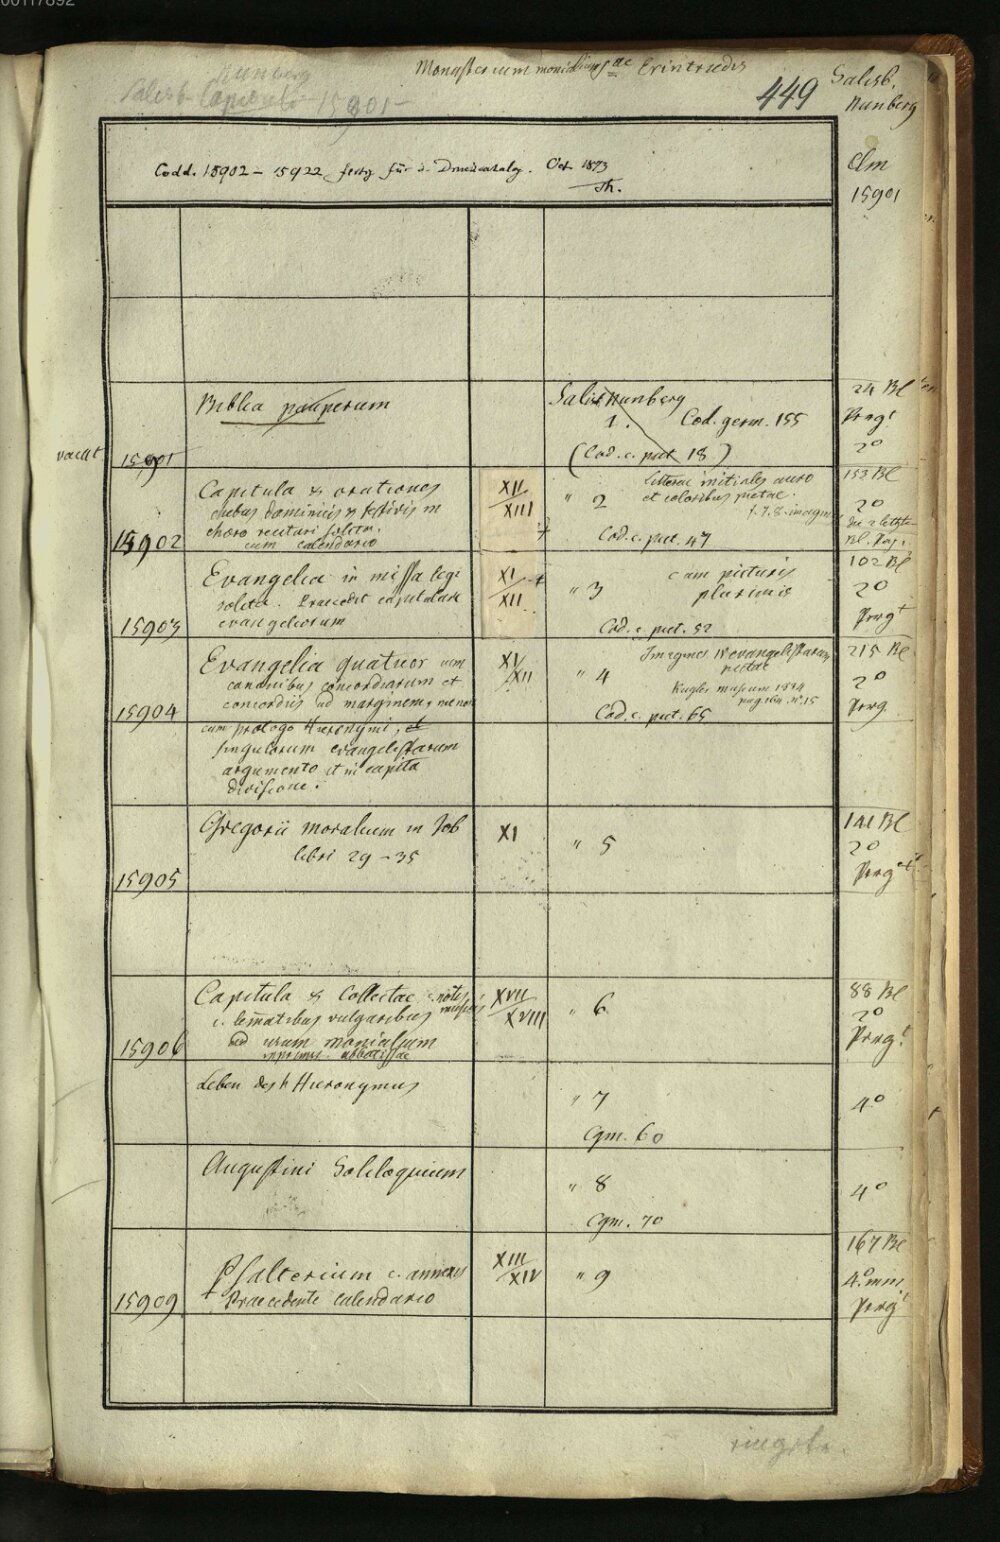 00117892
Monasterium monialium sae Erintrudis
Nunberg
Salisb. Capitula 15901 -
449
Salisb.
Nunberg
Codd. 15902 - 15922 fertig für d. Druckcatalog. Oct. 1873
Th.
Clm
15901
Biblia pauperum
Salisb. Nunberg
1. Cod. germ. 155
(Cod. c. pict. 18)
24 Bl
Perg t
2o
vacat
15901
Capitula & orationes
diebus dominicis & festivis in
choro recitari solitae.
cum calendario
15902
XII
XIII
" 2
Litterae initiales auro
et coloribus pictae.
f. 7. 8. imagines
Cod. c. pict. 47
153 Bl
2o
die 2 letzten
Bl. Pap.
Evangelia in missa legi
solita. Praecedit capitulare
evangeliorum
15903
XI
XII
" 3
cum picturis
plurimis
Cod. c. pict. 52
102 Bl
2o
Perg t
Evangelia quatuor cum
canonibus concordiarum et
concordiis ad marginem, necnon
15904
XI
XII
" 4
Imagines IV evangelistarum
pictae
Kugler museum 1834
pag. 164. n. 15
Cod. c. pict. 65
215 Bl
2o
Perg.
cum prologo Hieronymi, et
singulorum evangelistarum
argumento et in capita
divisione.
Gregorii moralium in Job
libri 29 - 35
15905
XI
" 5
141 Bl
2o
Perg t
Capitula & Collectae c. notis
musicis
c. lemmatibus vulgaribus
ad usum monialium
inprimis abbatissae
15906
XVII
XVIII
" 6
88 Bl
2o
Perg t
Leben des h Hieronymus
" 7
Cgm. 60
4o
Augustini Soliloquium
" 8
Cgm. 70
4o
Psalterium c. annexis
Praecedente calendario
15909
XIII
XIV
" 9
167 Bl
4o min
Perg t